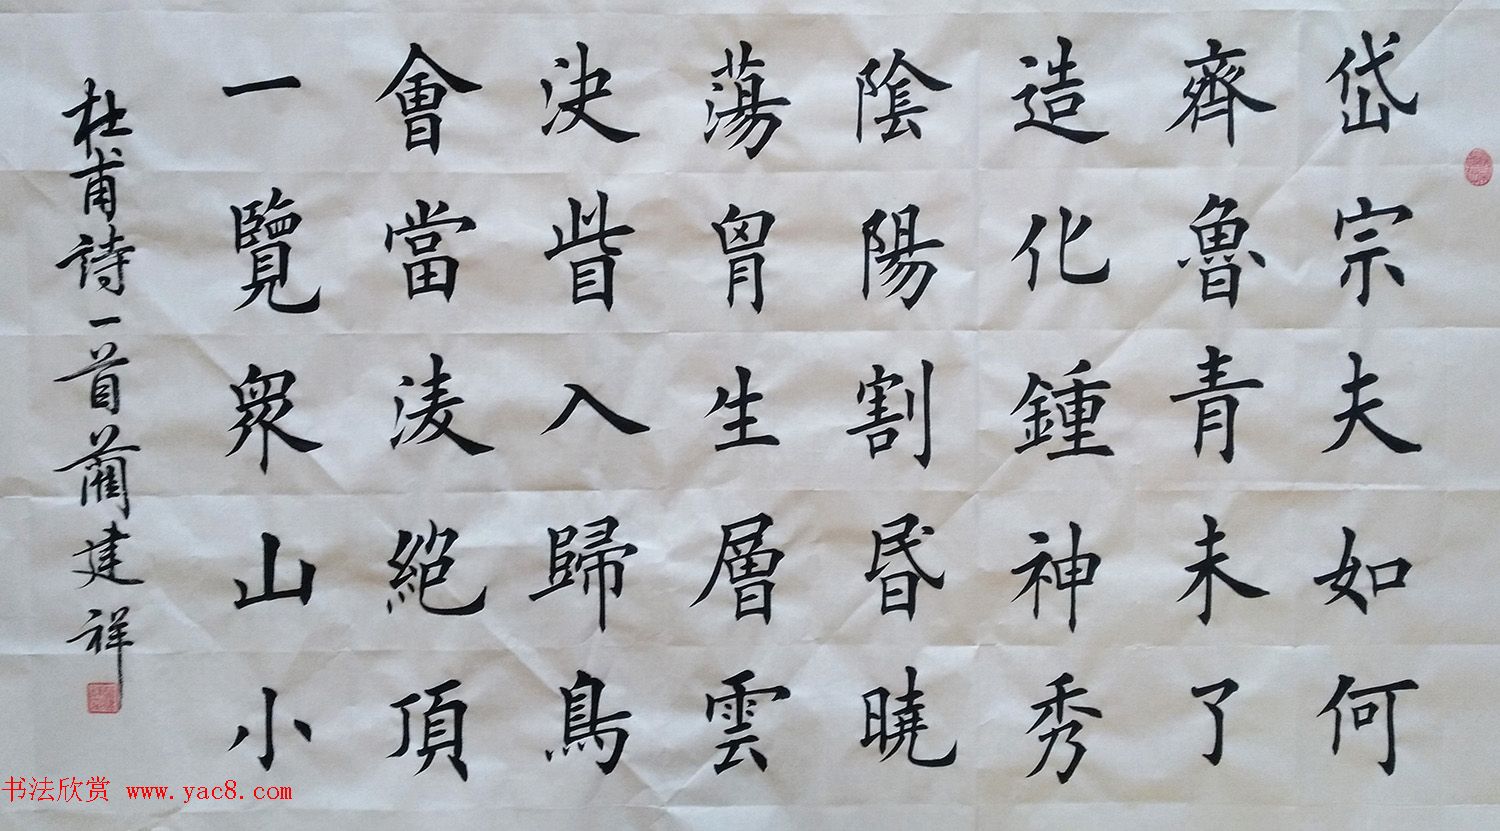 岱宗夫如何
齊魯青未了
造化鍾神秀
陰陽割昏曉
蕩胷生層雲
決眥入歸鳥
會當淩絕頂
一覽眾山小
杜甫詩一首蔺建祥
书法欣赏 www.yac8.com